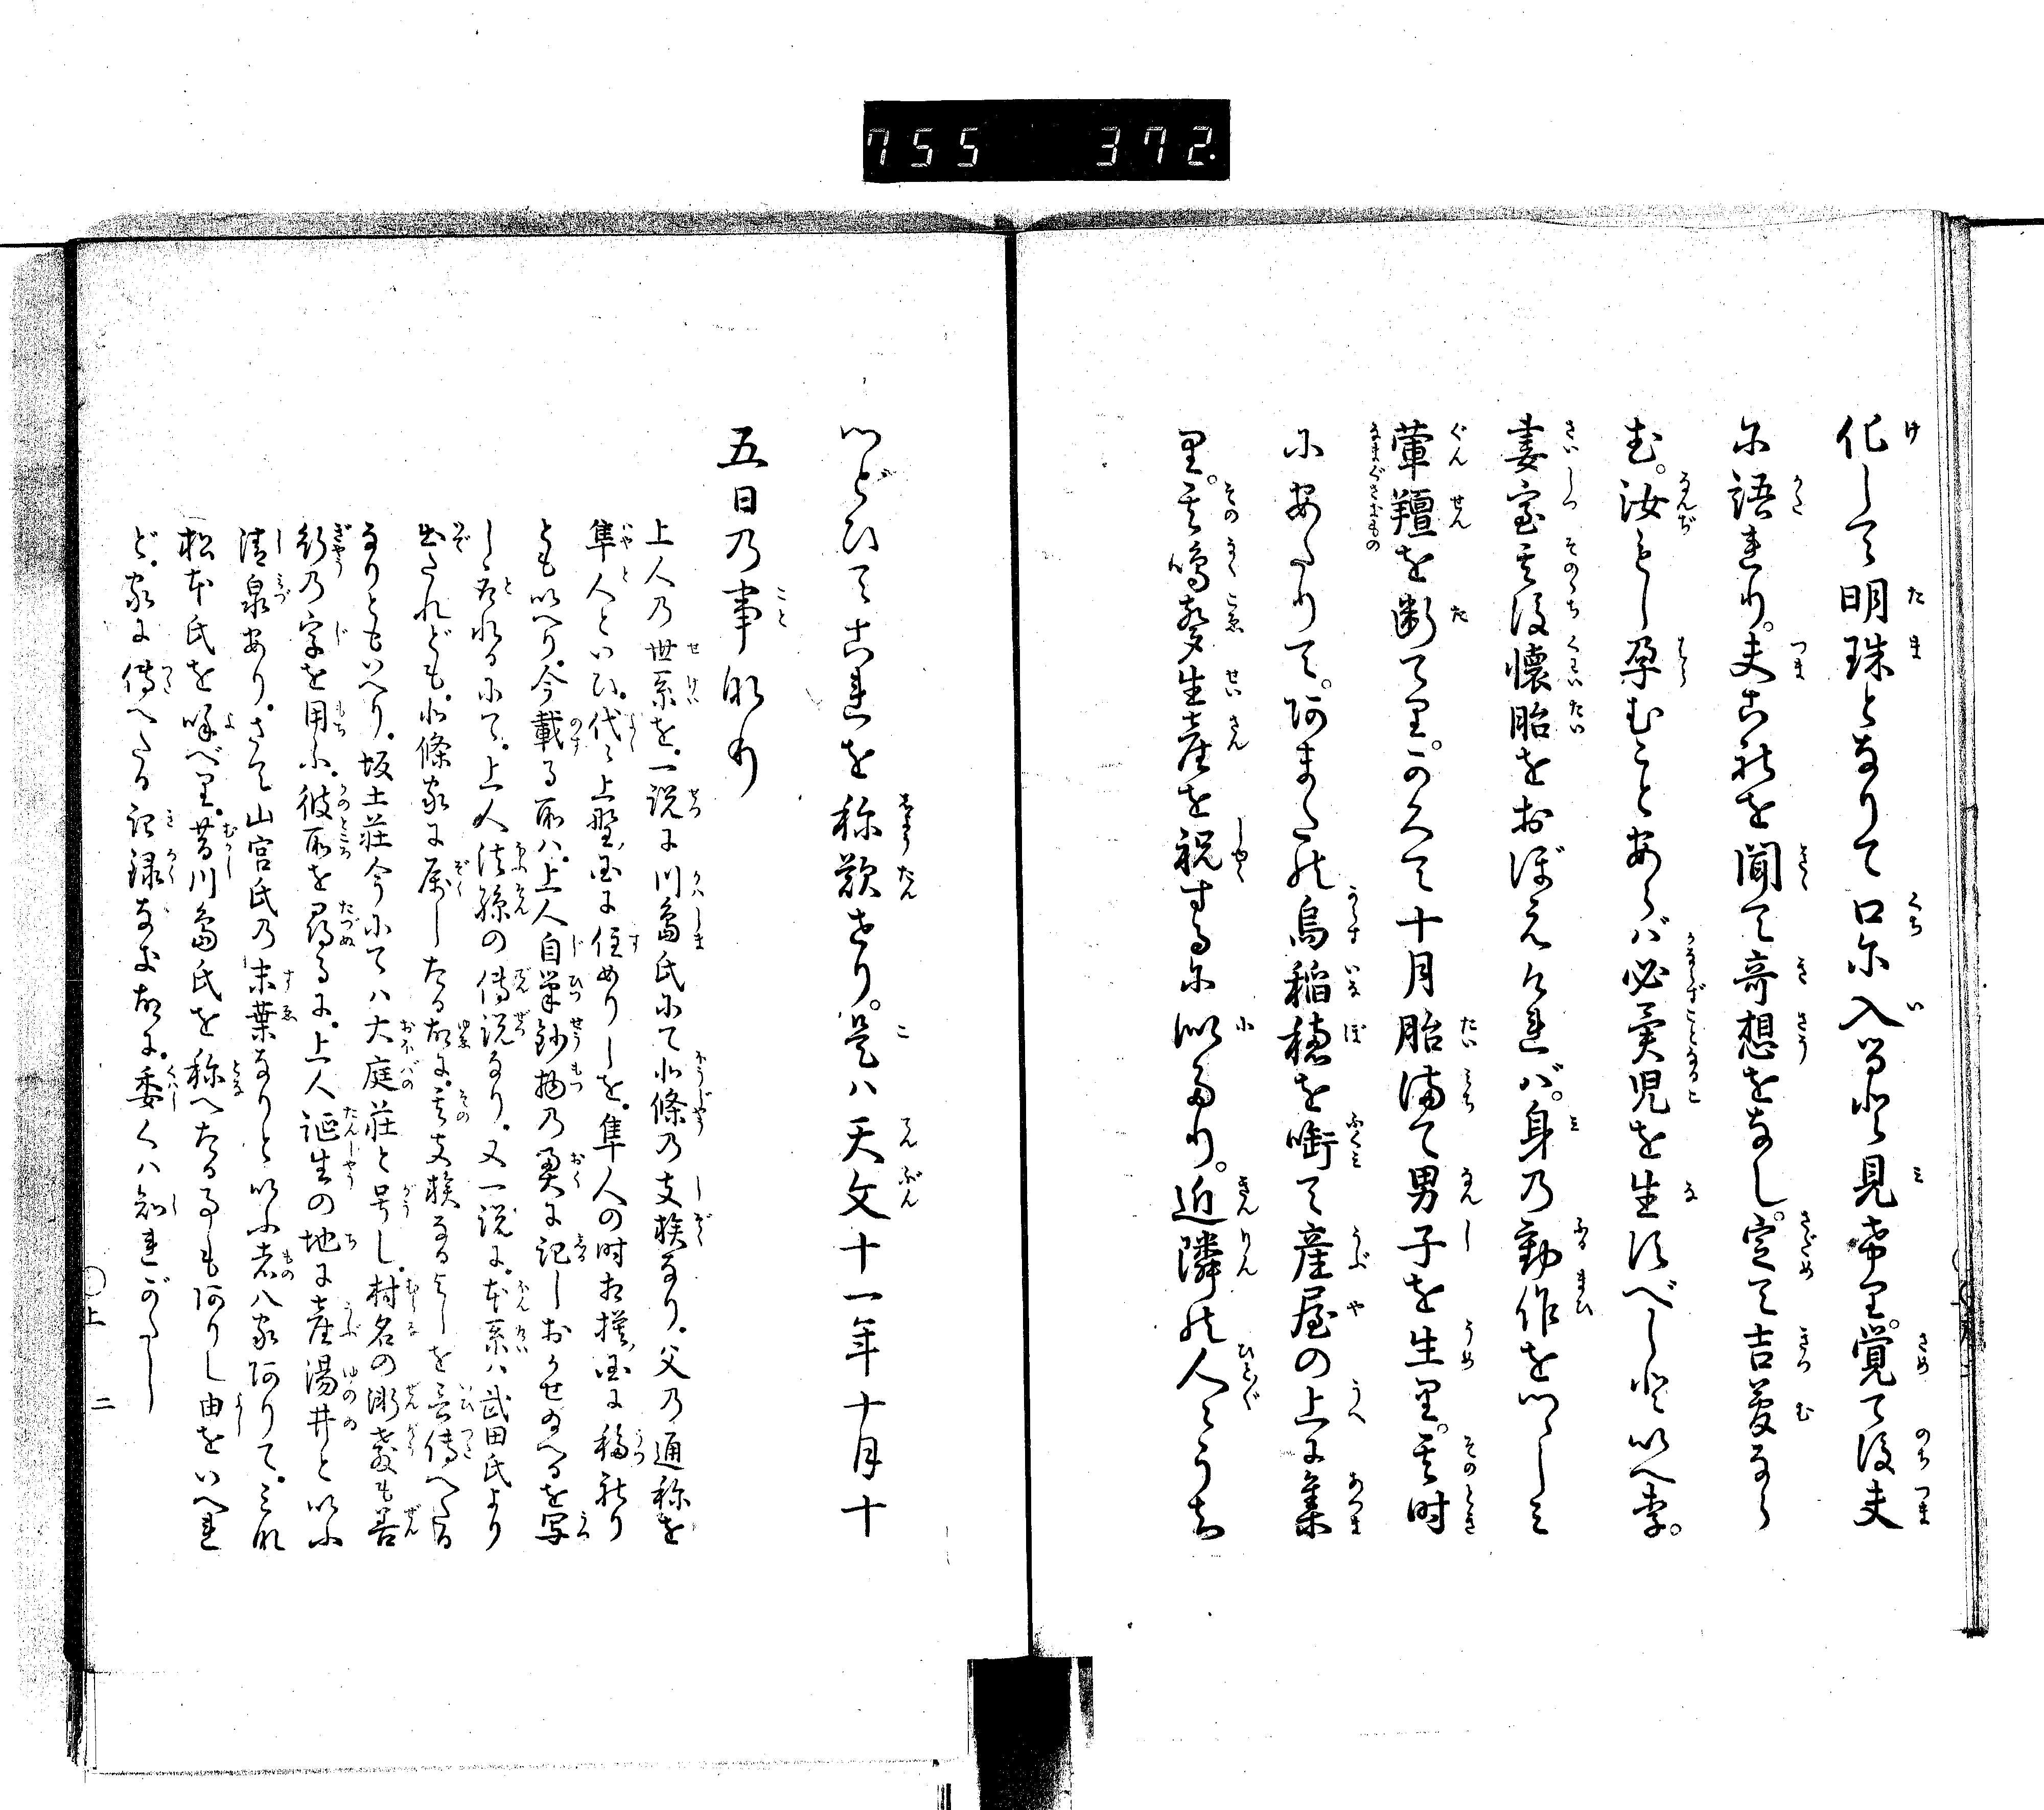 755 372.
化して明珠となりて口に入ると見けり。覚て後夫
に語れり。夫これを聞て奇想をなし。定て吉夢なら
む。汝もし孕むことあらバ必異児を生ずべしと以へり。
妻室其後懐胎をおぼえけれバ。身乃動作をつゝしミ
葷羶を断てり。かくて十月胎満て男子を生り。其時
にあたりて。あまたの烏稲穂を啣て産屋の上に集
り。其鳴声生産を祝するに似たり。近隣の人々うち
つどひてこれを称歎せり。是ハ天文十一年十月十
五日乃事なり
上人乃世系を。一説に川島氏にて北條乃支族なり。父乃通称を
隼人といひ。代々上野国に住めりしを。隼人の時相模国に移れり
とも以へり。今載る所ハ。上人自筆鈔物乃奥に記しおかせ給へるを写
しゝ所なるにて。上人法孫の傳説なり。又一説に。本系ハ武田氏より
出たれども。北條家に属したる故に。其支族なるよしを言傳へたる
なりともいへり。坂土荘今にてハ大庭荘と号し。村名の漸教も善
行乃字を用ふ。彼所を尋るに。上人誕生の地に産湯井と以ふ
清泉あり。さて山宮氏乃末葉なりと以ふ者八家ありて。ミな
松本氏を呼べり。昔川島氏を称へたる事もありし由をいへれ
ど。家に傳へたる記録なき故に。委くハ知れがたし
上 二